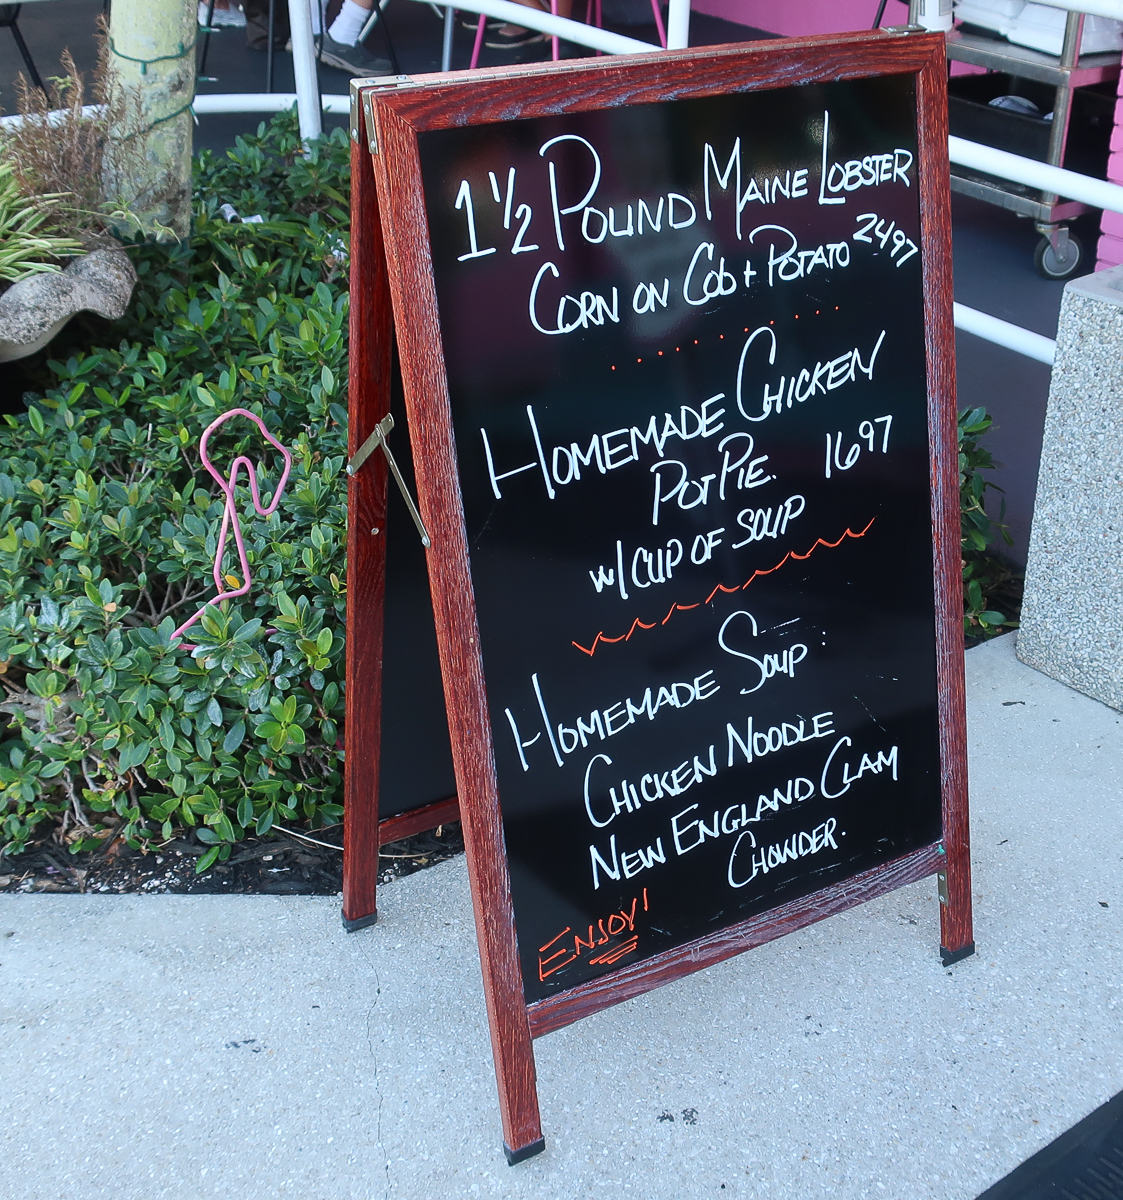 1½ POUND MAINE LOBSTER
CORN ON COB + POTATO 2497
HOMEMADE CHICKEN
POT PIE. 1697
w/ CUP OF SOUP
HOMEMADE SOUP:
CHICKEN NOODLE
NEW ENGLAND CLAM
CHOWDER.
ENJOY!